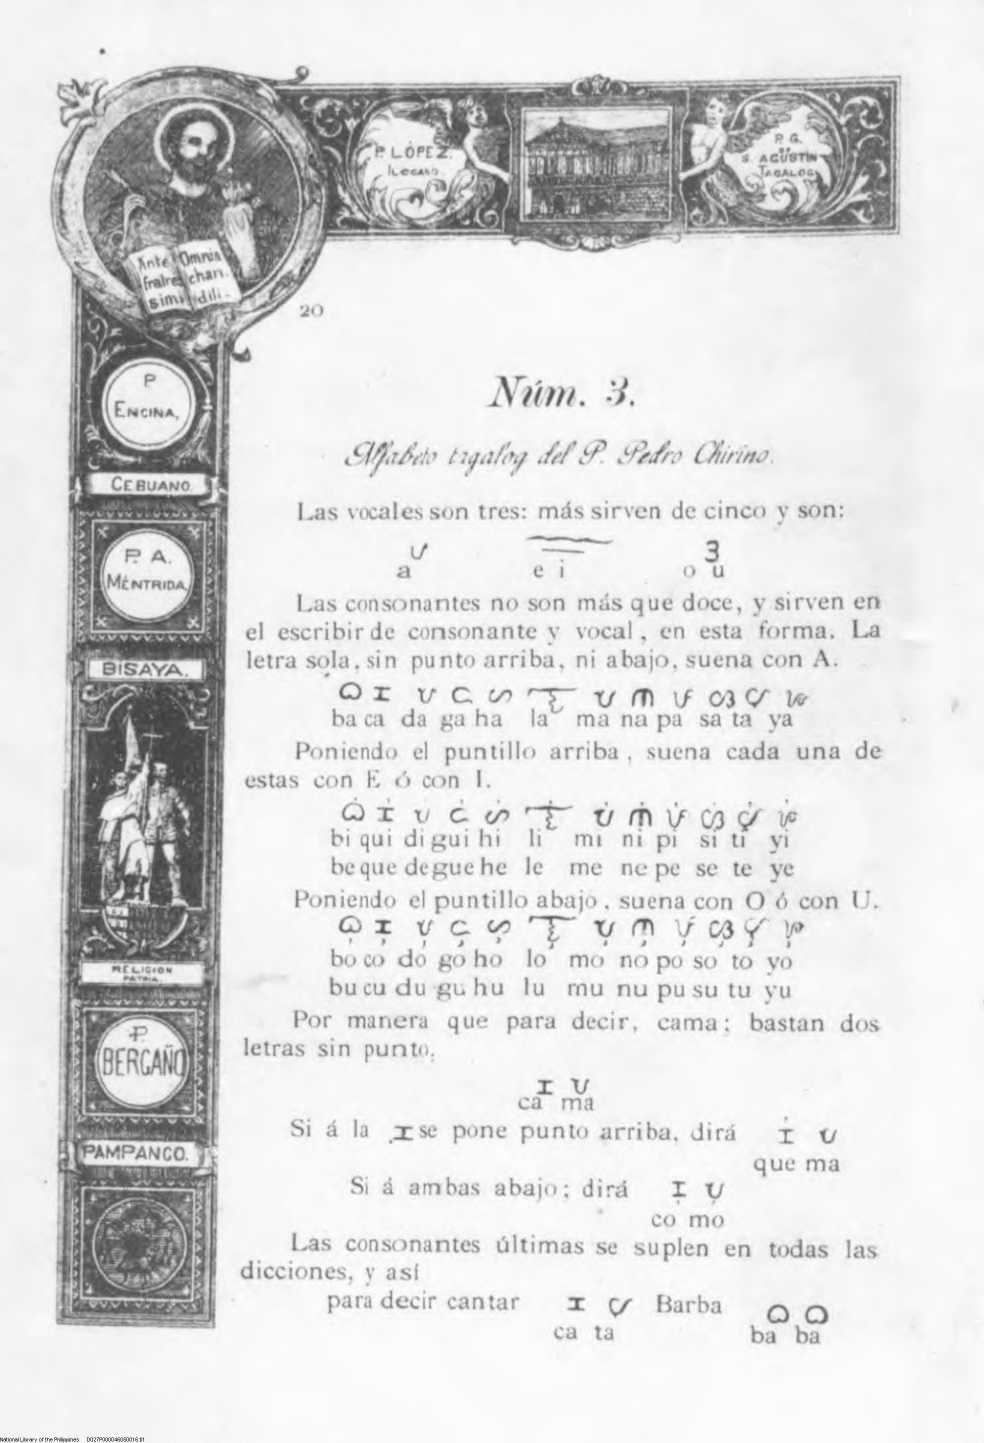 P. LÓPEZ.
ILOCANO.
P. G.
DE
S. AGUSTIN
TAGALOG
Ante Omnia
fratres chari-
simi dili-
20
P
ENCINA,
CEBUANO.
P. A.
MÉNTRIDA.
BISAYA.
RELIGION
PATRIA.
P.
BERGAÑO
PAMPANGO.
Núm. 3.
Alfabeto tagalog del P. Pedro Chirino.
Las vocales son tres: más sirven de cinco y son:
ᜀ ᜁ ᜂ
a e i o u
Las consonantes no son más que doce, y sirven en
el escribir de consonante y vocal, en esta forma. La
letra sola, sin punto arriba, ni abajo, suena con A.
ᜊ ᜃ ᜇ ᜄ ᜑ ᜎ ᜋ ᜈ ᜉ ᜐ ᜆ ᜌ
ba ca da ga ha la ma na pa sa ta ya
Poniendo el puntillo arriba, suena cada una de
estas con E ó con I.
ᜊᜒ ᜃᜒ ᜇᜒ ᜄᜒ ᜑᜒ ᜎᜒ ᜋᜒ ᜈᜒ ᜉᜒ ᜐᜒ ᜆᜒ ᜌᜒ
bi qui di gui hi li mi ni pi si ti yi
be que de gue he le me ne pe se te ye
Poniendo el puntillo abajo, suena con O ó con U.
ᜊᜓ ᜃᜓ ᜇᜓ ᜄᜓ ᜑᜓ ᜎᜓ ᜋᜓ ᜈᜓ ᜉᜓ ᜐᜓ ᜆᜓ ᜌᜓ
bo co do go ho lo mo no po so to yo
bu cu du gu hu lu mu nu pu su tu yu
Por manera que para decir, cama; bastan dos
letras sin punto.
ᜃ ᜋ
ca ma
Si á la ᜃ se pone punto arriba, dirá ᜃᜒ ᜋ
que ma
Si á ambas abajo; dirá ᜃᜓ ᜋᜓ
co mo
Las consonantes últimas se suplen en todas las
dicciones, y así
para decir cantar ᜃ ᜆ Barba ᜊ ᜊ
ca ta ba ba
National Library of the Philippines